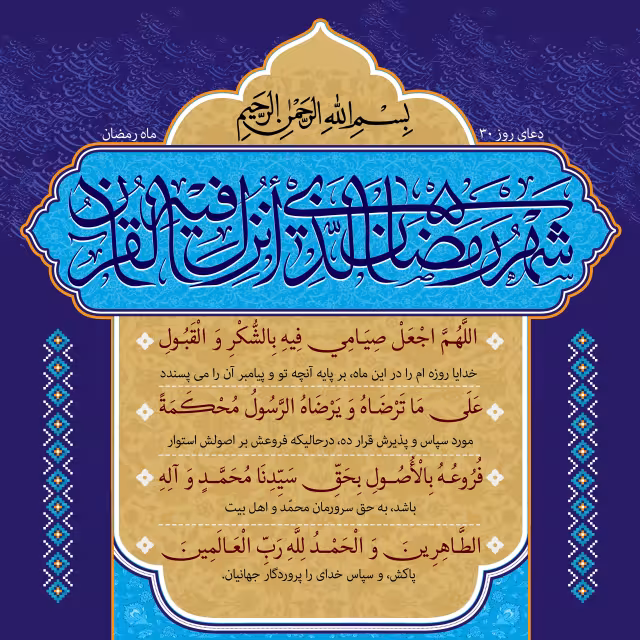 بِسْمِ اللهِ الرَّحْمٰنِ الرَّحِيمِ
دعای روز ۳۰
ماه رمضان
شَهْرُ رَمَضَانَ الَّذِي أُنْزِلَ فِيهِ الْقُرْآنُ
اللَّهُمَّ اجْعَلْ صِيَامِي فِيهِ بِالشُّكْرِ وَ الْقَبُولِ
خدایا روزه ام را در این ماه، بر پایه آنچه تو و پیامبر آن را می پسندد
عَلَى مَا تَرْضَاهُ وَ يَرْضَاهُ الرَّسُولُ مُحْكَمَةً
مورد سپاس و پذیرش قرار ده، درحالیکه فروعش بر اصولش استوار
فُرُوعُهُ بِالْأُصُولِ بِحَقِّ سَيِّدِنَا مُحَمَّدٍ وَ آلِهِ
باشد، به حق سرورمان محمّد و اهل بیت
الطَّاهِرِينَ وَ الْحَمْدُ لِلَّهِ رَبِّ الْعَالَمِينَ
پاکش، و سپاس خدای را پروردگار جهانیان.